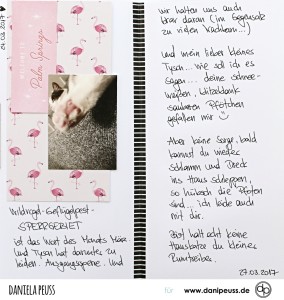 27.03.2017
WELCOME TO
Palm Springs
Wildvogel-Geflügelpest-
SPERRGEBIET
ist das Wort des Monats März.
und Tyson hat darunter zu
leiden. Ausgangssperre. Und
wir halten uns auch
brav daran (im Gegensatz
zu vielen Nachbarn...)
und mein lieber kleines
Tyson... wie soll ich es
sagen... deine schnee-
weißen, blitzblank
sauberen Pfötchen
gefallen mir
Aber keine Sorge, bald
kannst du wieder
schlamm und Dreck
ins Haus schleppen,
so hübsch die Pfoten
sind... ich leide auch
mit dir.
Bist halt echt keine
Hauskatze du kleiner
27.03.2017-
DANIELA PEUSS
für
www.danipeuss.de
dp